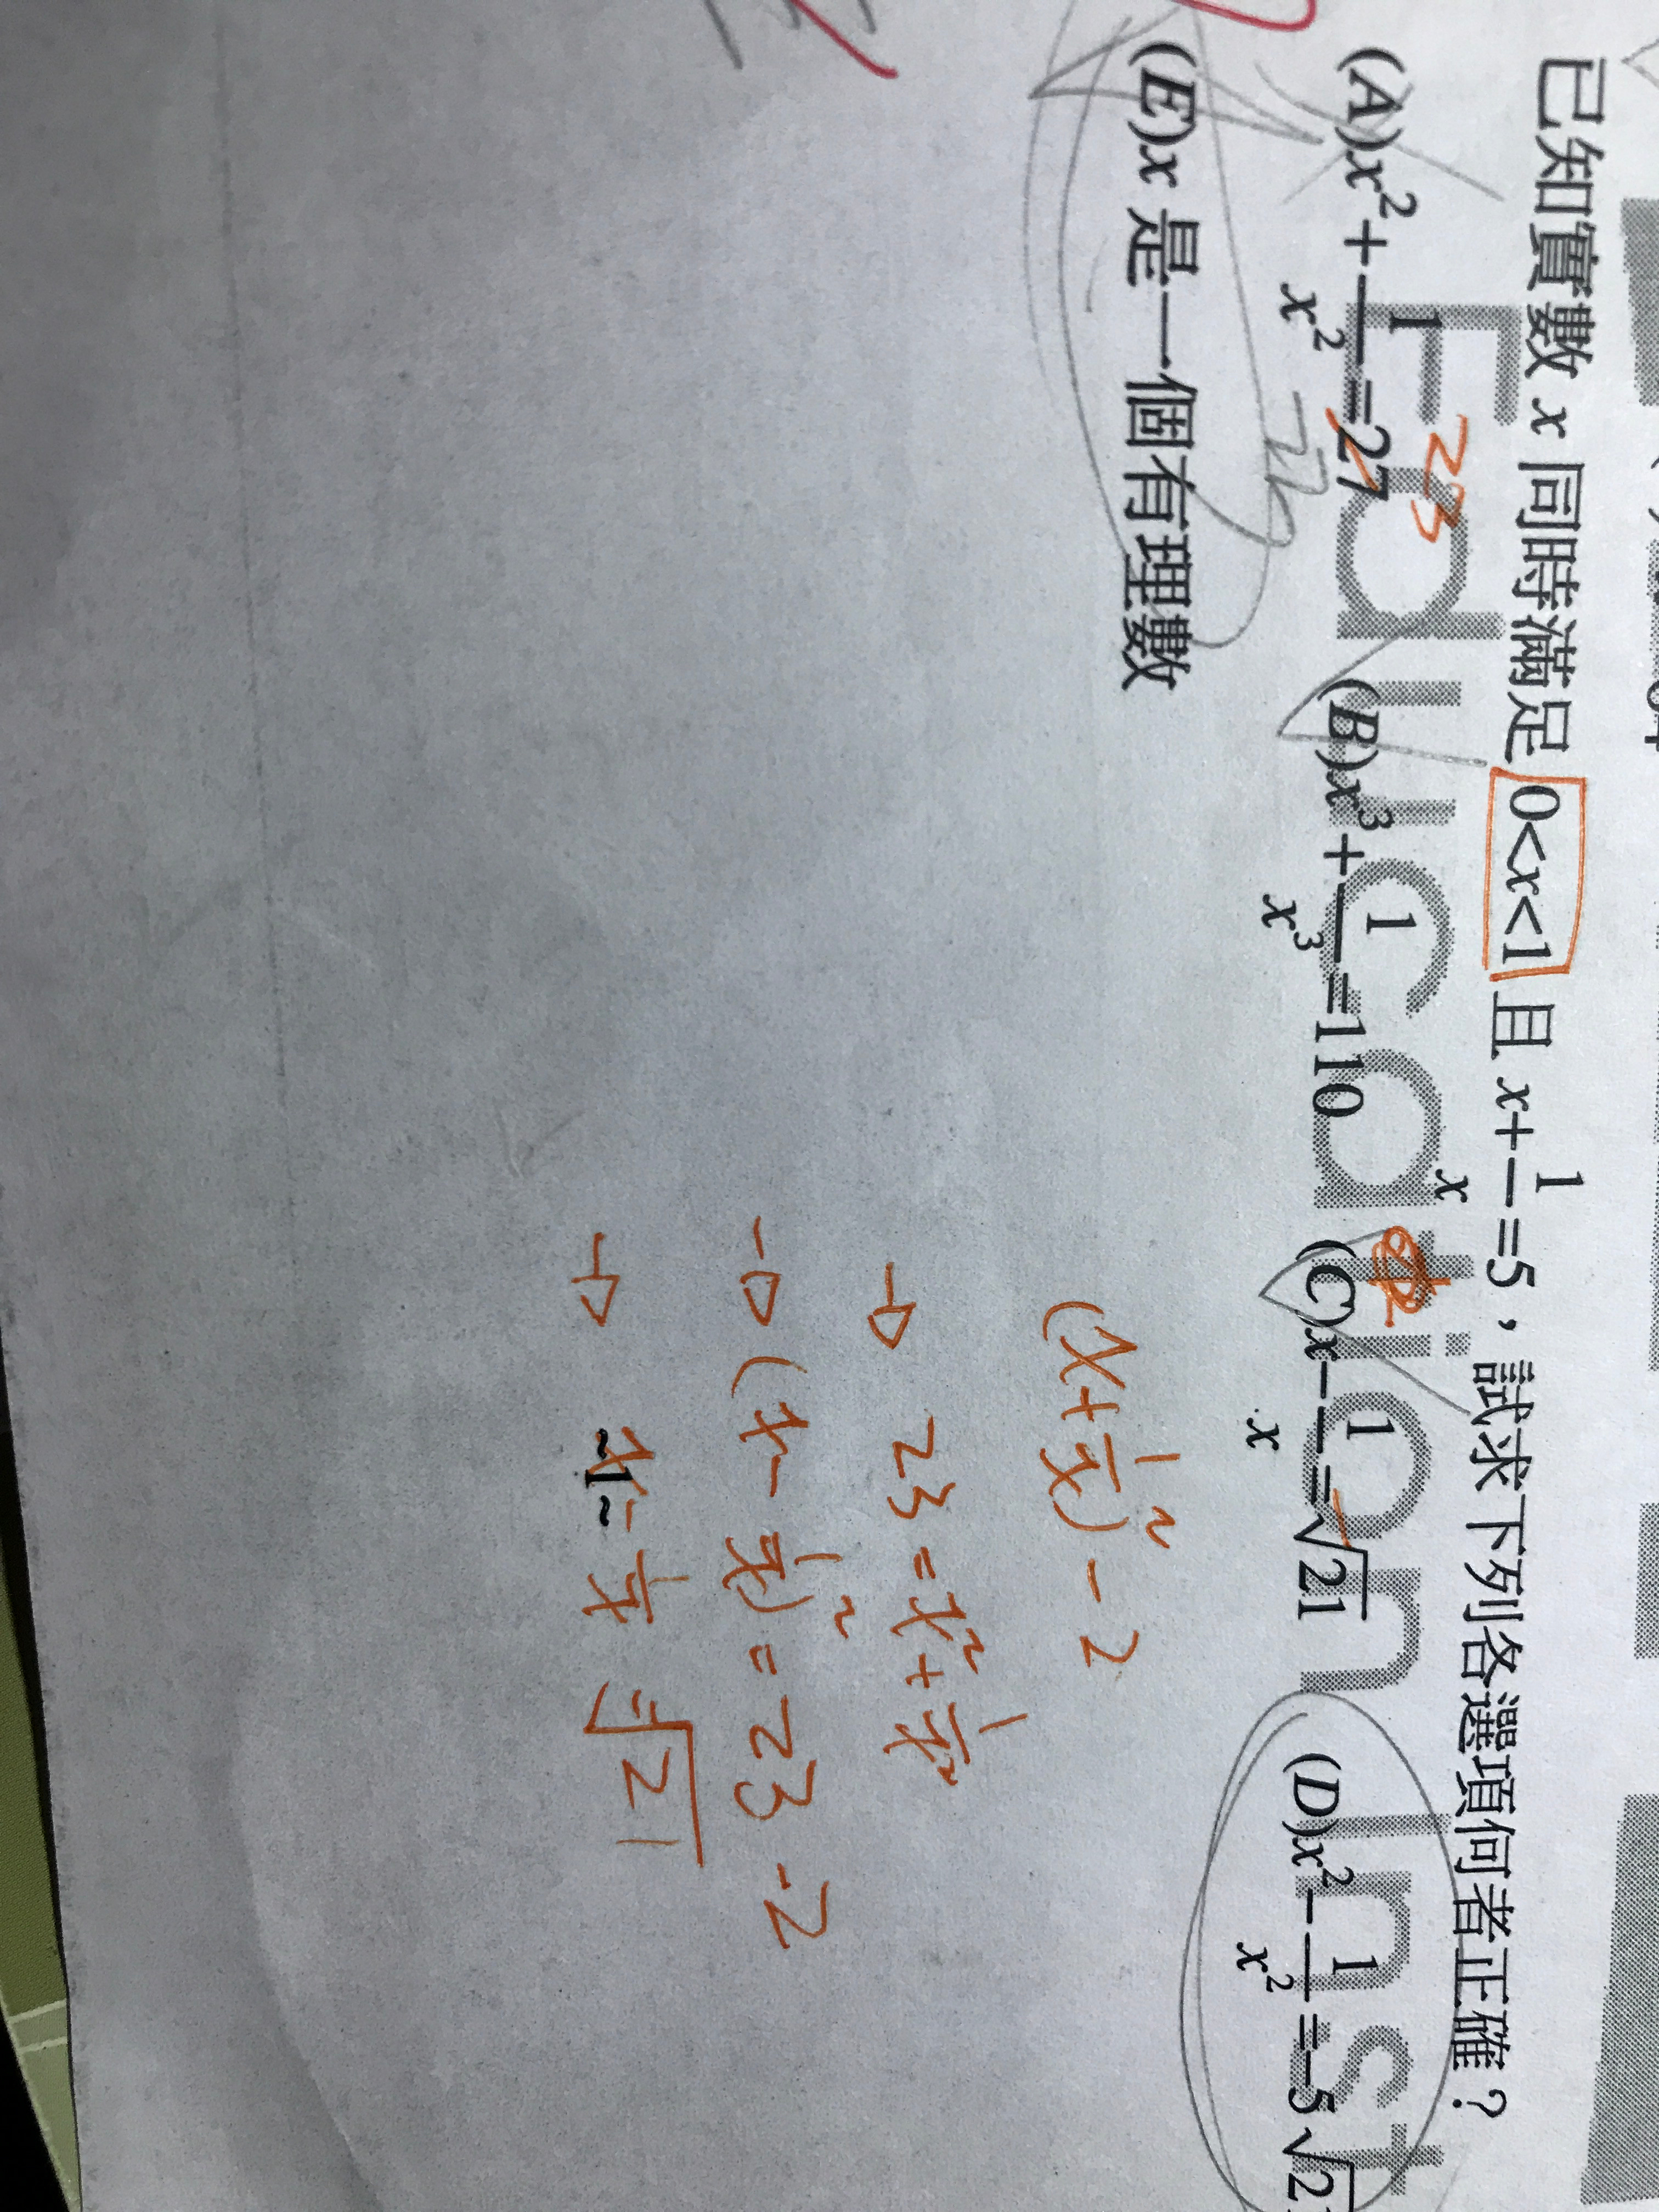 已知實數 x 同時滿足 0<x<1 且 x+1/x=5，試求下列各選項何者正確？
(A)x²+1/x²=27 (B)x³+1/x³=110 (C)x-1/x=√21 (D)x²-1/x²=-5√21
23
(E)x 是一個有理數
(x+1/x)²-2
→ 23=x²+1/x²
→ (x-1/x)²=23-2
→ x-1/x=√21
~1~
Education Inst